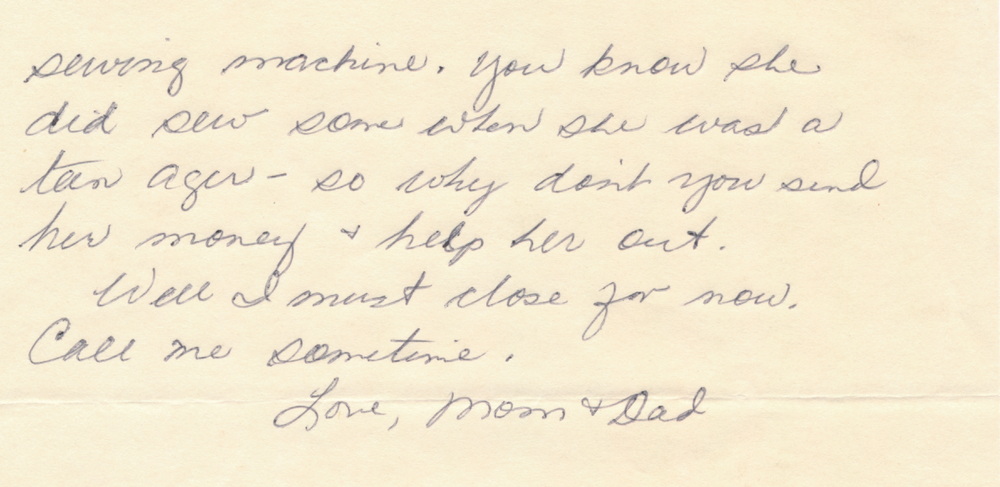 sewing machine. You know she
did sew some when she was a
teen ager - so why don't you send
her money + help her out.
Well I must close for now.
Call me sometime.
Love, Mom + Dad